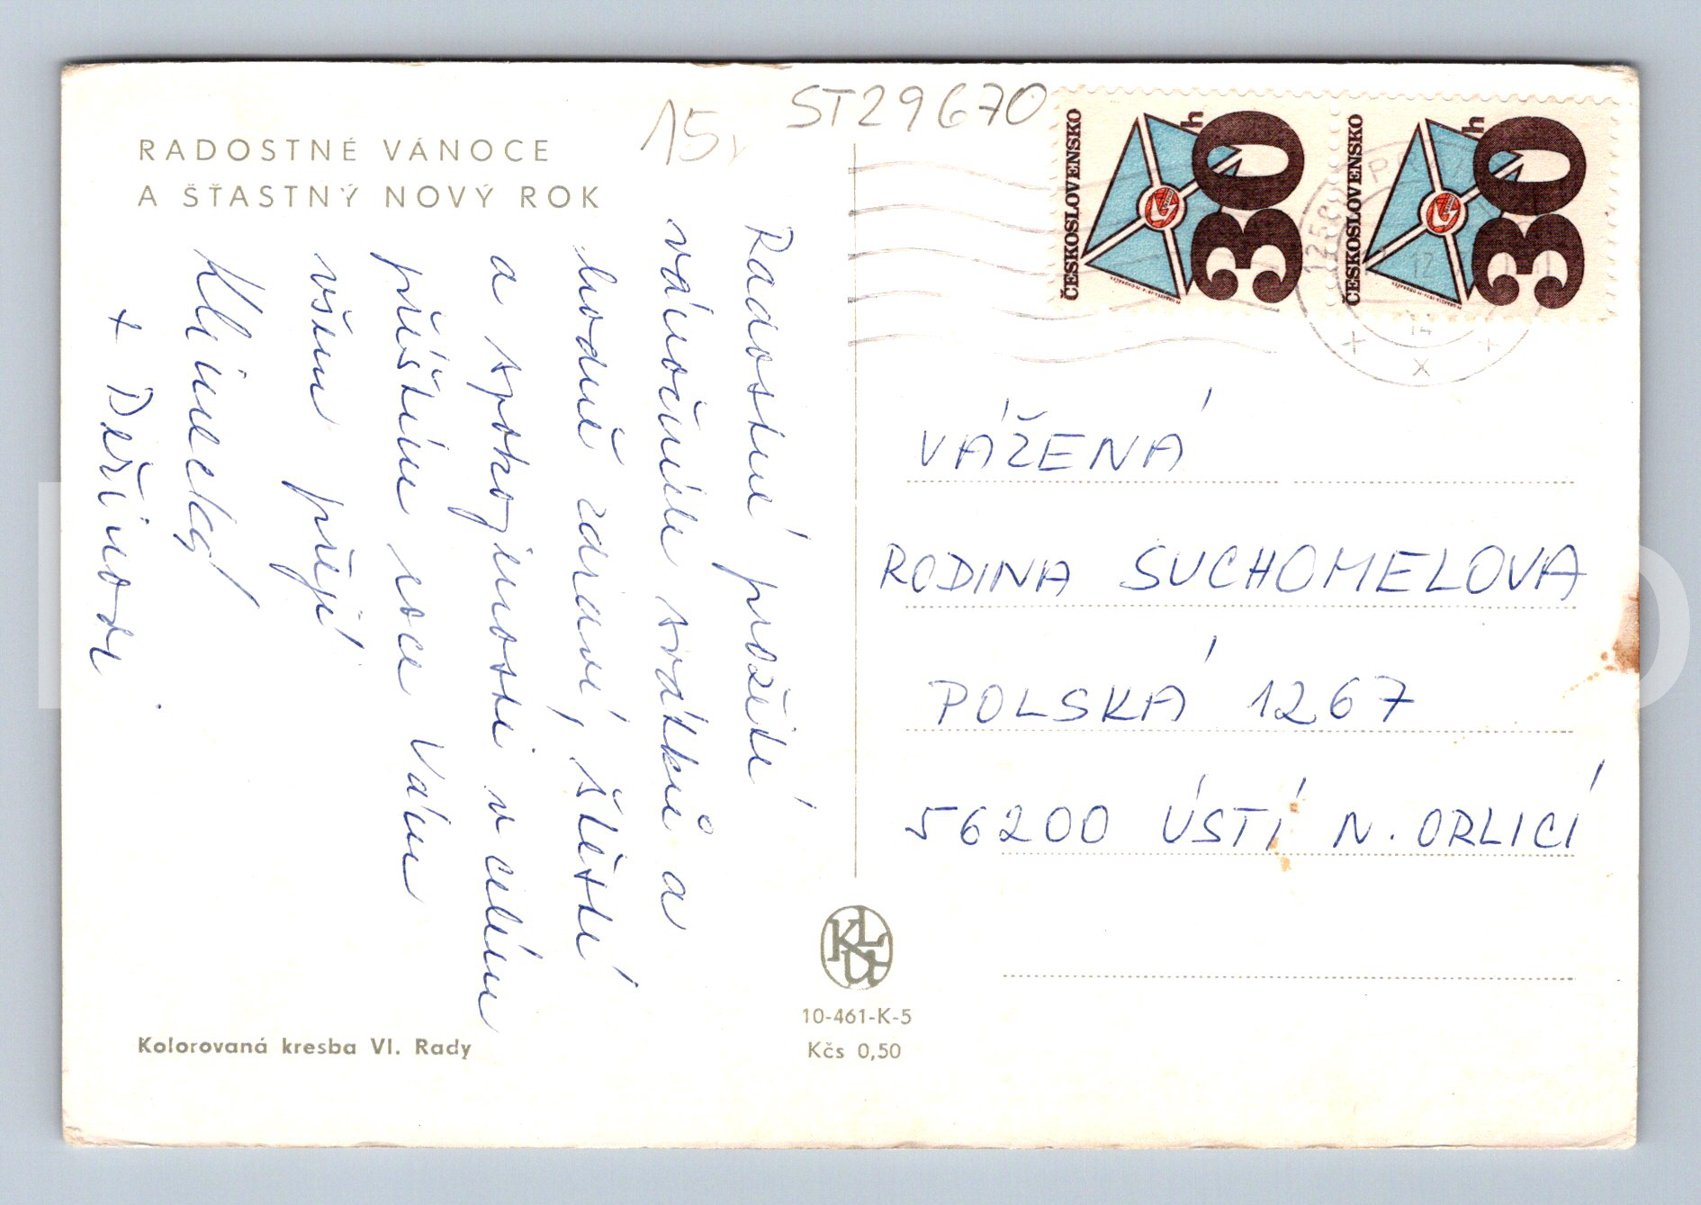 RADOSTNÉ VÁNOCE
A ŠŤASTNÝ NOVÝ ROK
15,
ST29670
Radostné prožití
vánočních svátků a
hodně zdraví, štěstí
a spokojenosti v celém
příštím roce Vám
všem přejí
Klimecký
+ Deřinovi
Kolorovaná kresba Vl. Rady
10-461-K-5
Kčs 0,50
ČESKOSLOVENSKO
30h
ČESKOSLOVENSKO
30h
VÁŽENÁ
RODINA SUCHOMELOVA
POLSKÁ 1267
56200 ÚSTÍ N. ORLICÍ